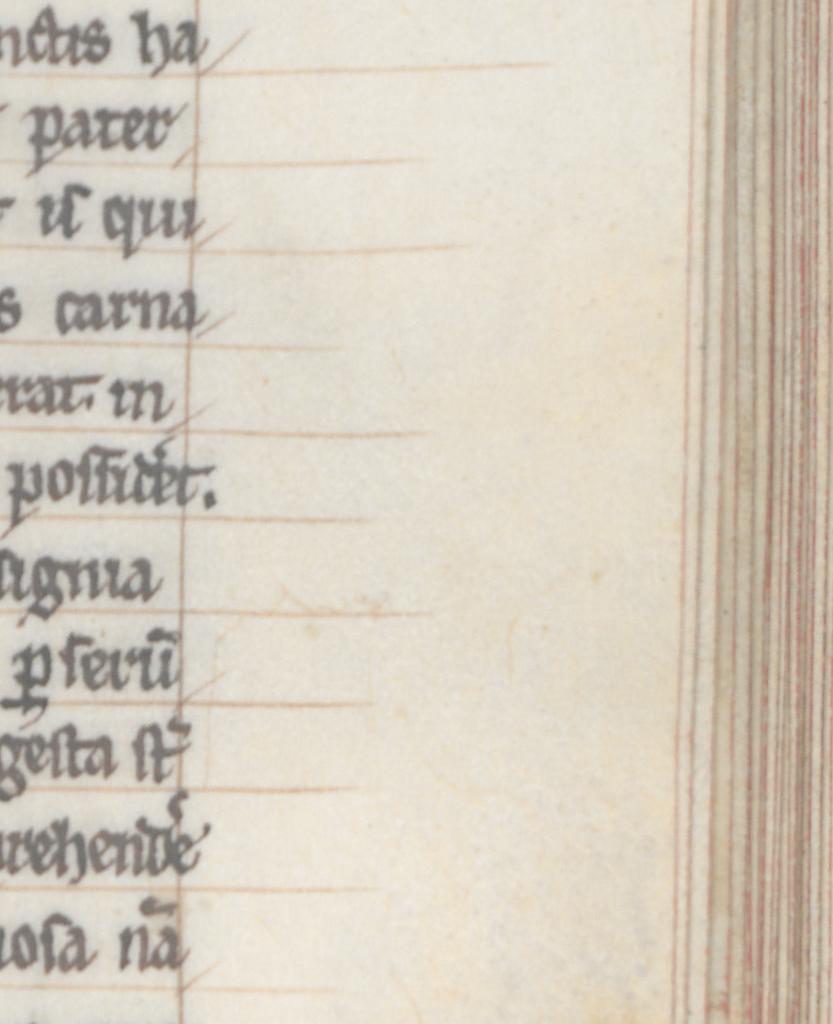 nctis ha
pater
ĩſ qui
s carna
rat in
poſſidet̉.
ſignia
ꝑ ſerũ
geſta ſt̃
rehendẽ
ioſa nã